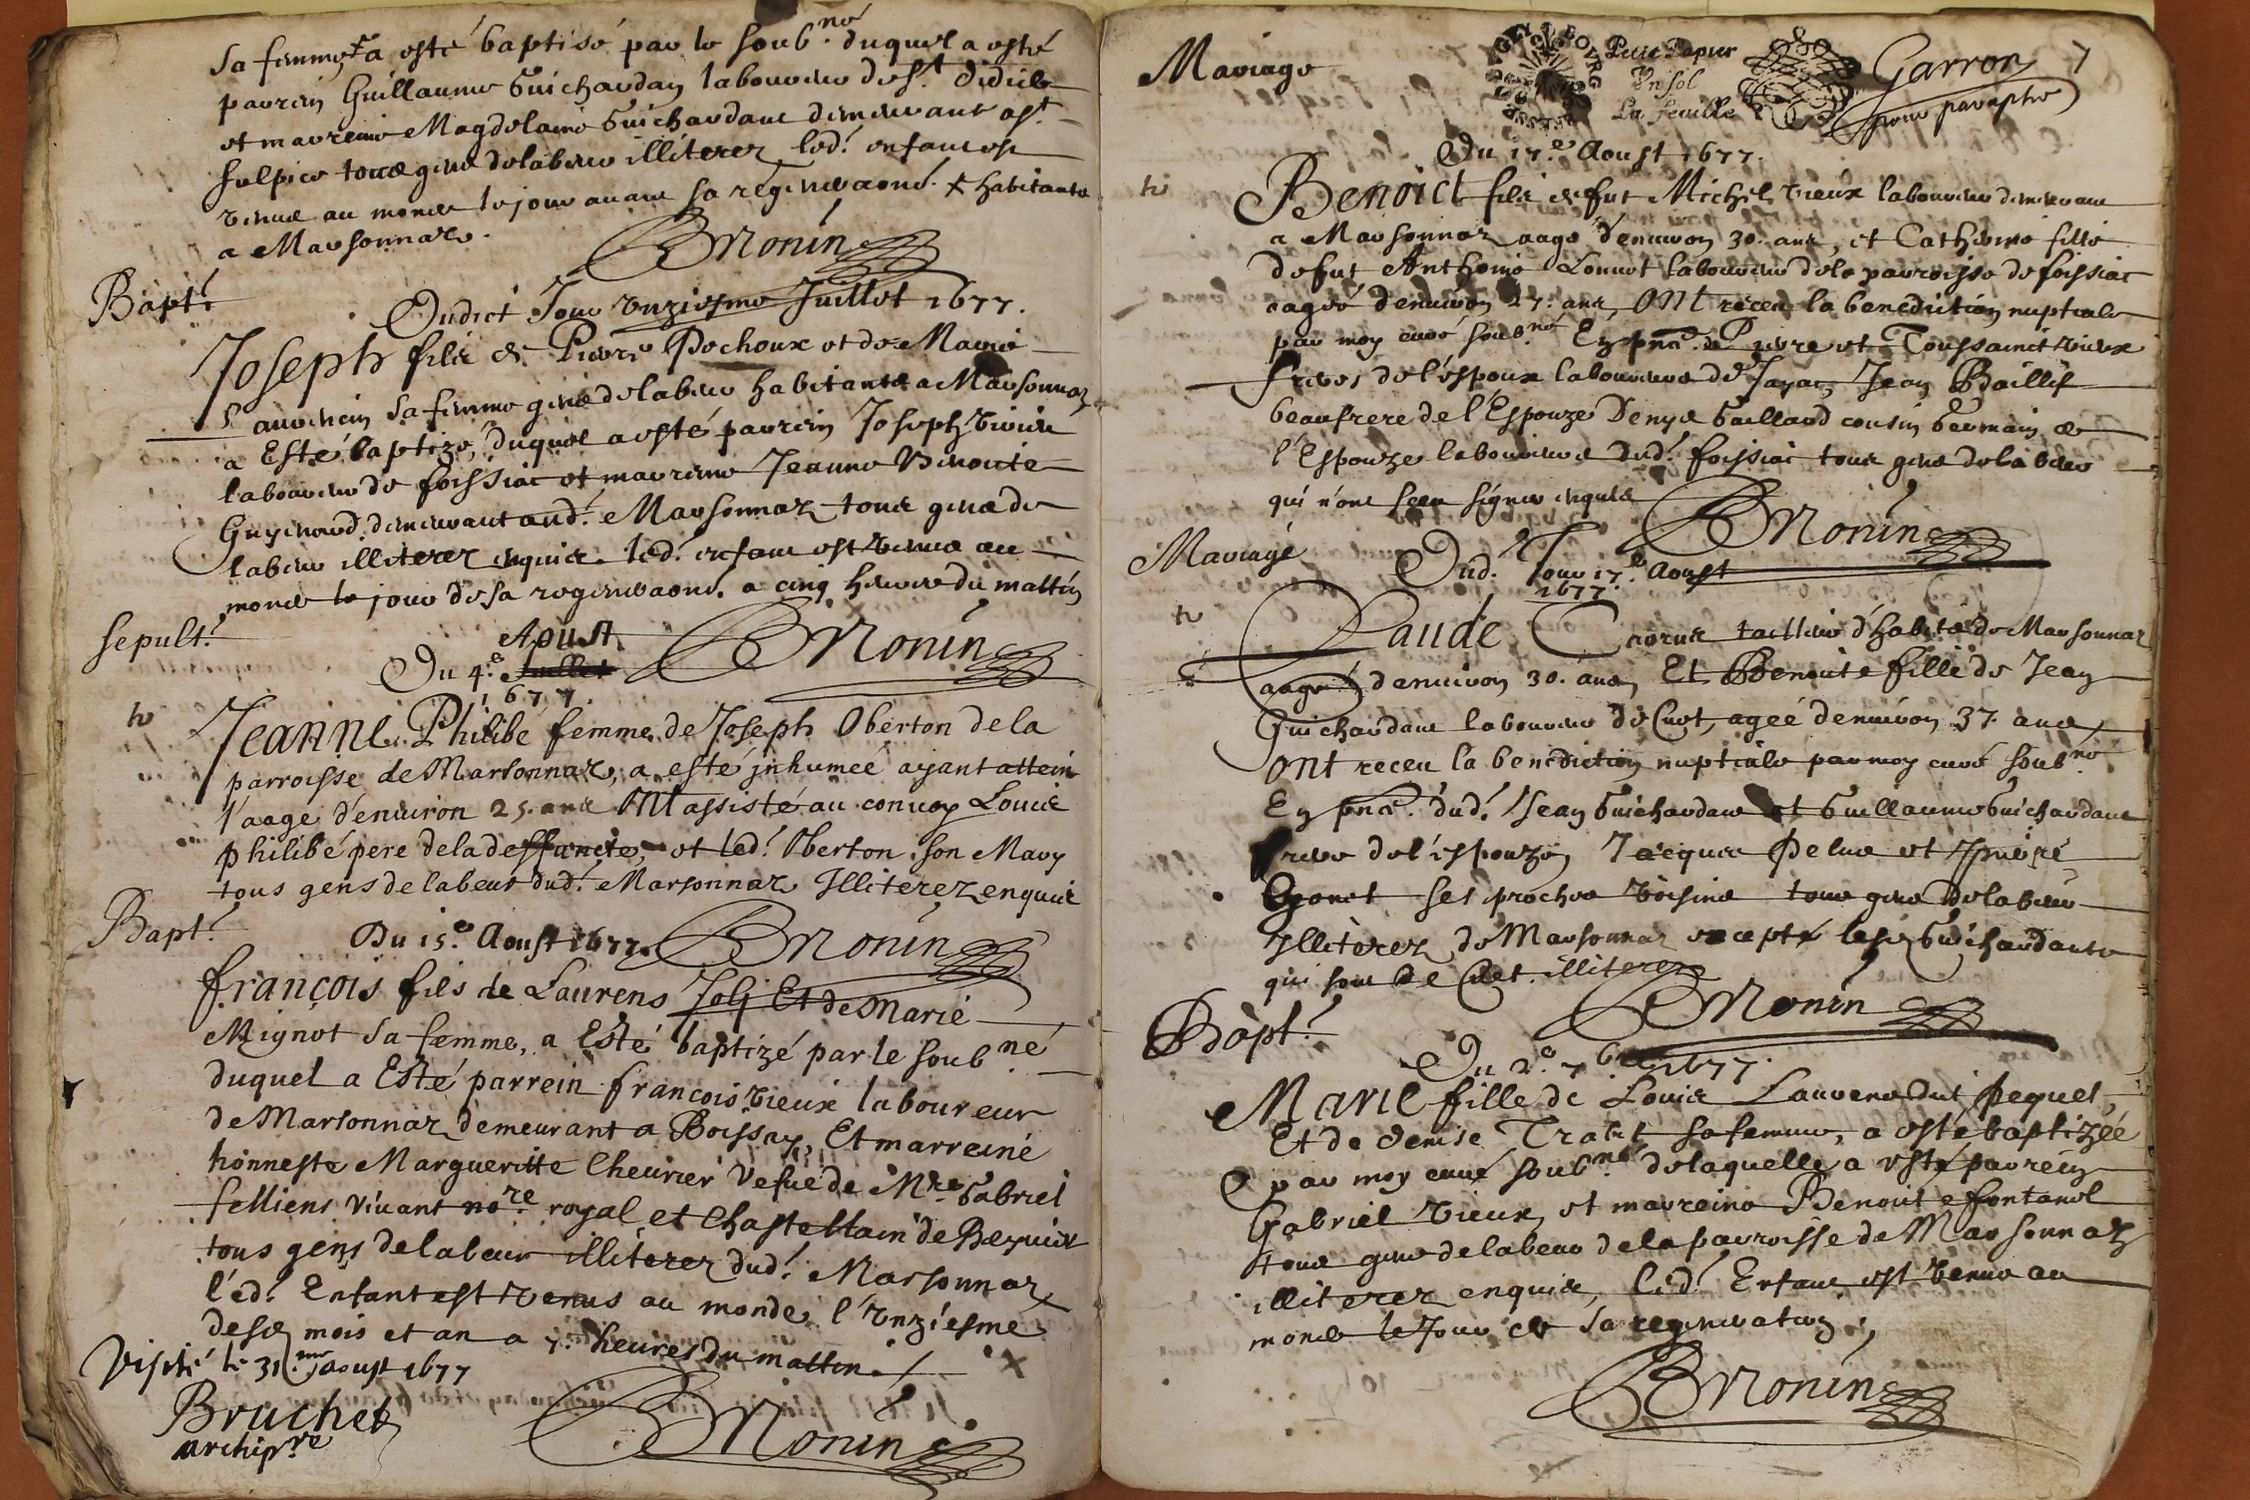 sa femme ✝ a esté baptisé par le soub.né duquel a esté
parrein Guillaume Guichardan laboureur de St. Didier
et marreine Magdelaine Guichardant demeurant a St.
Sulpice tous gens de labeur illiterez led.t enfant est
venue au monde le jour avant sa régénéraõne. ✝ habitants
a Marsonnaz.
BMonin
Bapt.e
Dudict Jour unziesme Juillet 1677.
Joseph fils de Pierre Pochoux et de Marie
sa femme gens de labeur habitants a Marsonnaz
a Esté baptizé, duquel a esté parrein Joseph Vivier
laboureur de foissiac et marreine Jeanne Benoite
demeurant aud.t Marsonnaz tous gens de
labeur illiterez enquis. led.t enfant est venus au
monde le jour de sa regeneraõne. a cinq heures du mattin
BMonin
Sepult.e
Aoust
Du 4.e Juillet
1677.
Jeanne Philibé femme de Joseph Oberton de la
parroisse de Marsonnaz, a esté jnhumée ayant attein
l'aage d'enuiron 25. ans Ont assisté au conuoy Louis
philibé pere de la deffuncte, et led.t Oberton son Mary
tous gens de labeur dud.t Marsonnaz Illiterez enquis
BMonin
Bapt.e
Du 15.e Aoust 1677.
françois fils de Laurens Joly Et de Marie
Mignot sa femme, a Esté baptizé par le soub.né
duquel a Esté parrein françois vieux laboureur
de Marsonnaz demeurant a Boissey, Et marreine
honneste Margueritte Cheurier vefue de M.re Gabriel
felliens viuant no.re royal et Chastellain de Bey
tous gens de labeur illiterez dud.t Marsonnaz
l'ed.t Enfant est venus au monde l'unziesme
desd. mois et an a 7. heures du mattin.
Visité le 31.me aoust 1677
Bruchet
archip.re
BMonin
Mariage
Petit Papier
Un sol
La feuille
Garron
pour paraphe
7
Du 17.e Aoust 1677.
Benoict fils de fut Michel vieux laboureur demeurant
a Marsonnaz aagé d'enuiron 30. ans, et Catherine fille
de fut Anthoine Lonnet laboureur de la parroisse de foissiac
aagée d'enuiron 27. ans, Ont receu la benediction nuptiale
par moy curé soub.né En pn̄ce de Pierre et Toussainct vieux
freres de l'espoux laboureurs de Jayac, Jean Baillif
beaufrere de l'Espouze Denys Gailland cousin germain de
l'Espouze laboureurs dud.t foissiac tous gens de labeur
qui n'ont sceu signer enquis
BMonin
Mariage
Dud.t Jour 17.e Aoust
1677.
Claude tailleur d'habits de Marsonnaz
aagé d'enuiron 30. ans, Et Benoite fille de Jean
Guichardant laboureur de Cuet, agée d'enuiron 37. ans
Ont receu la benediction nuptiale par moy curé soub.né
En pn̄ce. dud.t Jean Guichardant et Guillaume Guichardant
frere de l'espouze, Jacques Pelus et Pierre
ses proches voisins tous gens de labeur
Illiterez de Marsonnaz excepté lesd. Guichardants
qui sont de Cuet illiterez
BMonin
Bapt.e
Du 2.e 7bre 1677.
Marie fille de Louis Laurens dit Pequet,
Et de denise sa femme, a esté baptizée
par moy curé soub.né de laquelle a esté parrein
Gabriel vieux, et marreine Benoite fontanel
tous gens de labeur de la parroisse de Marsonnaz
illiterez enquis, led.t Enfant est venue au
monde le Jour de sa regeneration.
BMonin